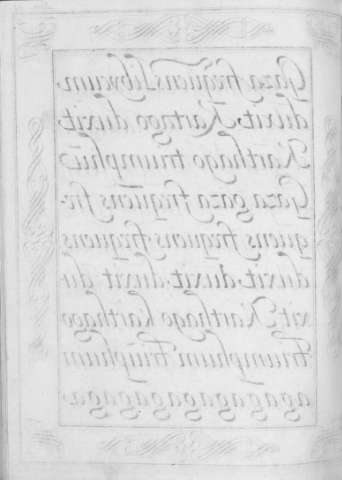 Gaza frequens Libycum.
duxit. Kartago duxit.
Karthago triumphū
Gaza gaza frequens fre-
quens frequens. frequens.
duxit. duxit. duxit. du
xit Karthago karthago
triumphum triūphum
agagagagagaga.